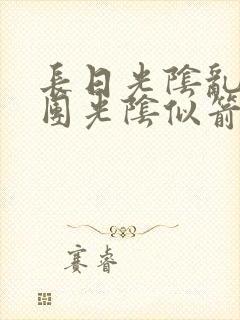 長日光陰亂
團光陰似箭
賽睿